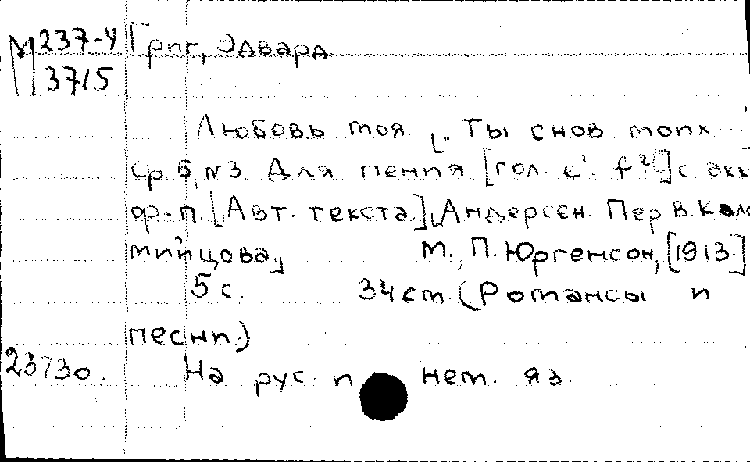 М 237-4 Григ, Эдвард.
3715
Любовь моя. "Ты снов моих
Ор. 5, N 3. Для пения [гол. c¹. f²] с акк
ф-п. [Авт. текста:] Андерсен. Пер. В. Колo
мийцова.] М., П. Юргенсон, [1913]
5 с. 34 см. (Романсы и
песни.)
23730. На рус. и нем. яз.